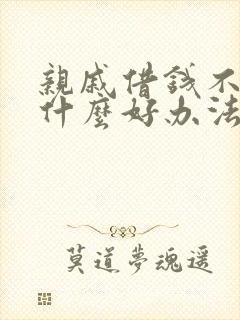 親戚借錢不
什麼好办法
莫道夢魂遥